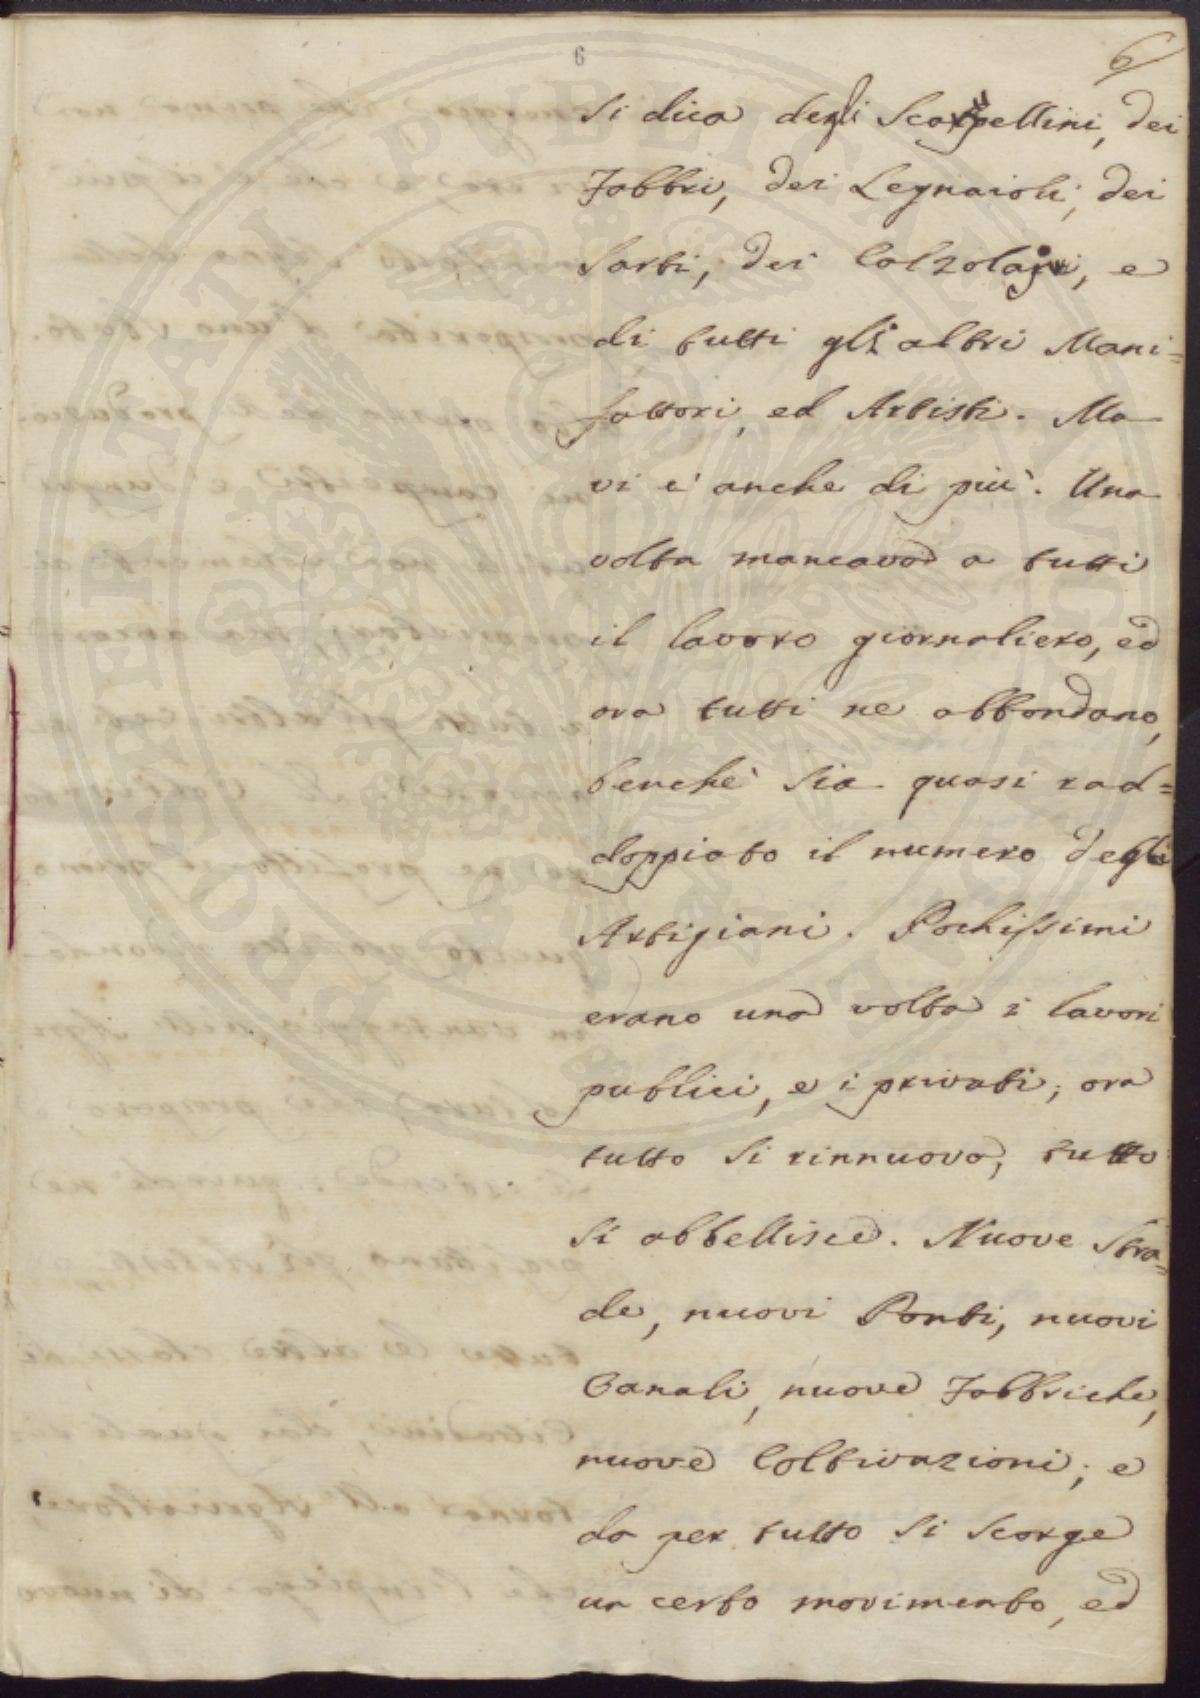 6
6
si dica degli Scarpellini, dei
Fabbri, dei Legnaioli, dei
Sarti, dei Calzolaj, e
di tutti gli altri Mani=
fattori, ed Artisti. Ma
vi è anche di più. Una
volta mancava a tutti
il lavoro giornaliero, ed
ora tutti ne abbondano,
benchè sia quasi rad=
doppiato il numero degli
Artigiani. Pochissimi
erano una volta i lavori
publici, e i privati; ora
tutto si rinnuova, tutto
si abbellisce. Nuove Stra=
de, nuovi Ponti, nuovi
Canali, nuove Fabbriche,
nuove Coltivazioni; e
da per tutto si scorge
un certo movimento, ed